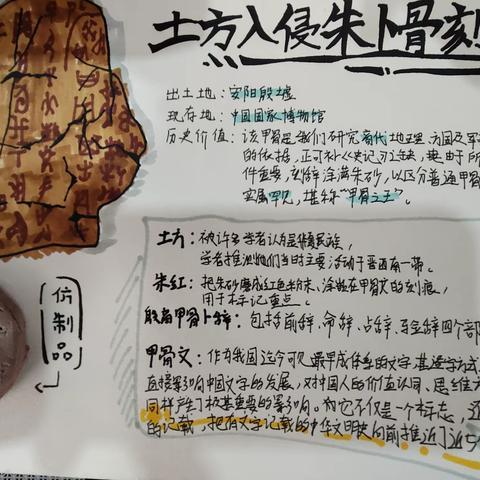 土方入侵朱卜骨刻
出土地：安阳殷墟
现存地：中国国家博物馆
历史价值：该甲骨是我们研究商代地理、方国及军
的依据，正可补《史记》之缺，其由于所
件重要，刻辞涂满朱砂，以区分普通甲骨
实属罕见，堪称“甲骨之王”。
土方：被许多学者认为是俄族，
学者推测他们当时主要活动于晋西南一带。
朱红：把朱砂磨成红色粉末、涂嵌在甲骨文的刻痕，
用于标记重点。
殷商甲骨卜辞：包括前辞、命辞、占辞、验辞四个部
甲骨文：作为我国迄今可见最早成体系的文字
直接影响中国文字的发展，又对中国人的价值认同、思维方
同样产生了极其重要的影响。和它不仅是一个标志，还
的记载 把有文字记载的中华文明史向前推近了近
仿制品